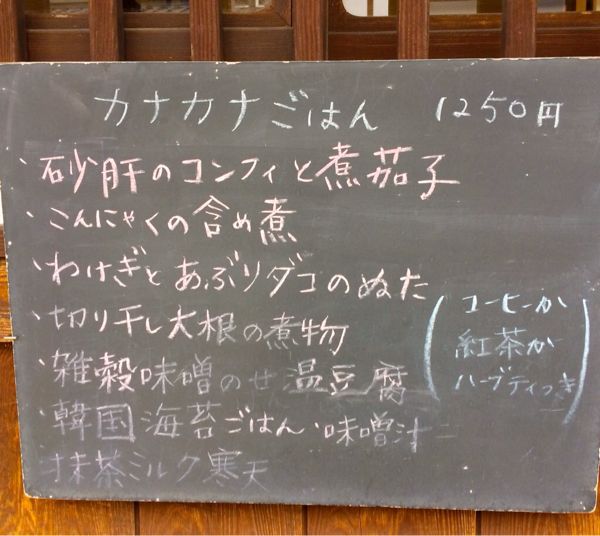 カナカナごはん 1250円
・砂肝のコンフィと煮茄子
・こんにゃくの含め煮
・わけぎとあぶりダコのぬた
・切り干し大根の煮物
・雑穀味噌のせ温豆腐
・韓国海苔ごはん・味噌汁
抹茶ミルク寒天
(コーヒーか
紅茶か
ハーブティつき)